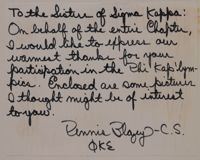 To the Sisters of Sigma Kappa:
On behalf of the entire Chapter,
I would like to express our
warmest thanks for your
participation in the Phi Kap'lym-
pics. Enclosed are some pictures
I thought might be of interest
to you.
Dennis -C.S.
ΦΚΣ